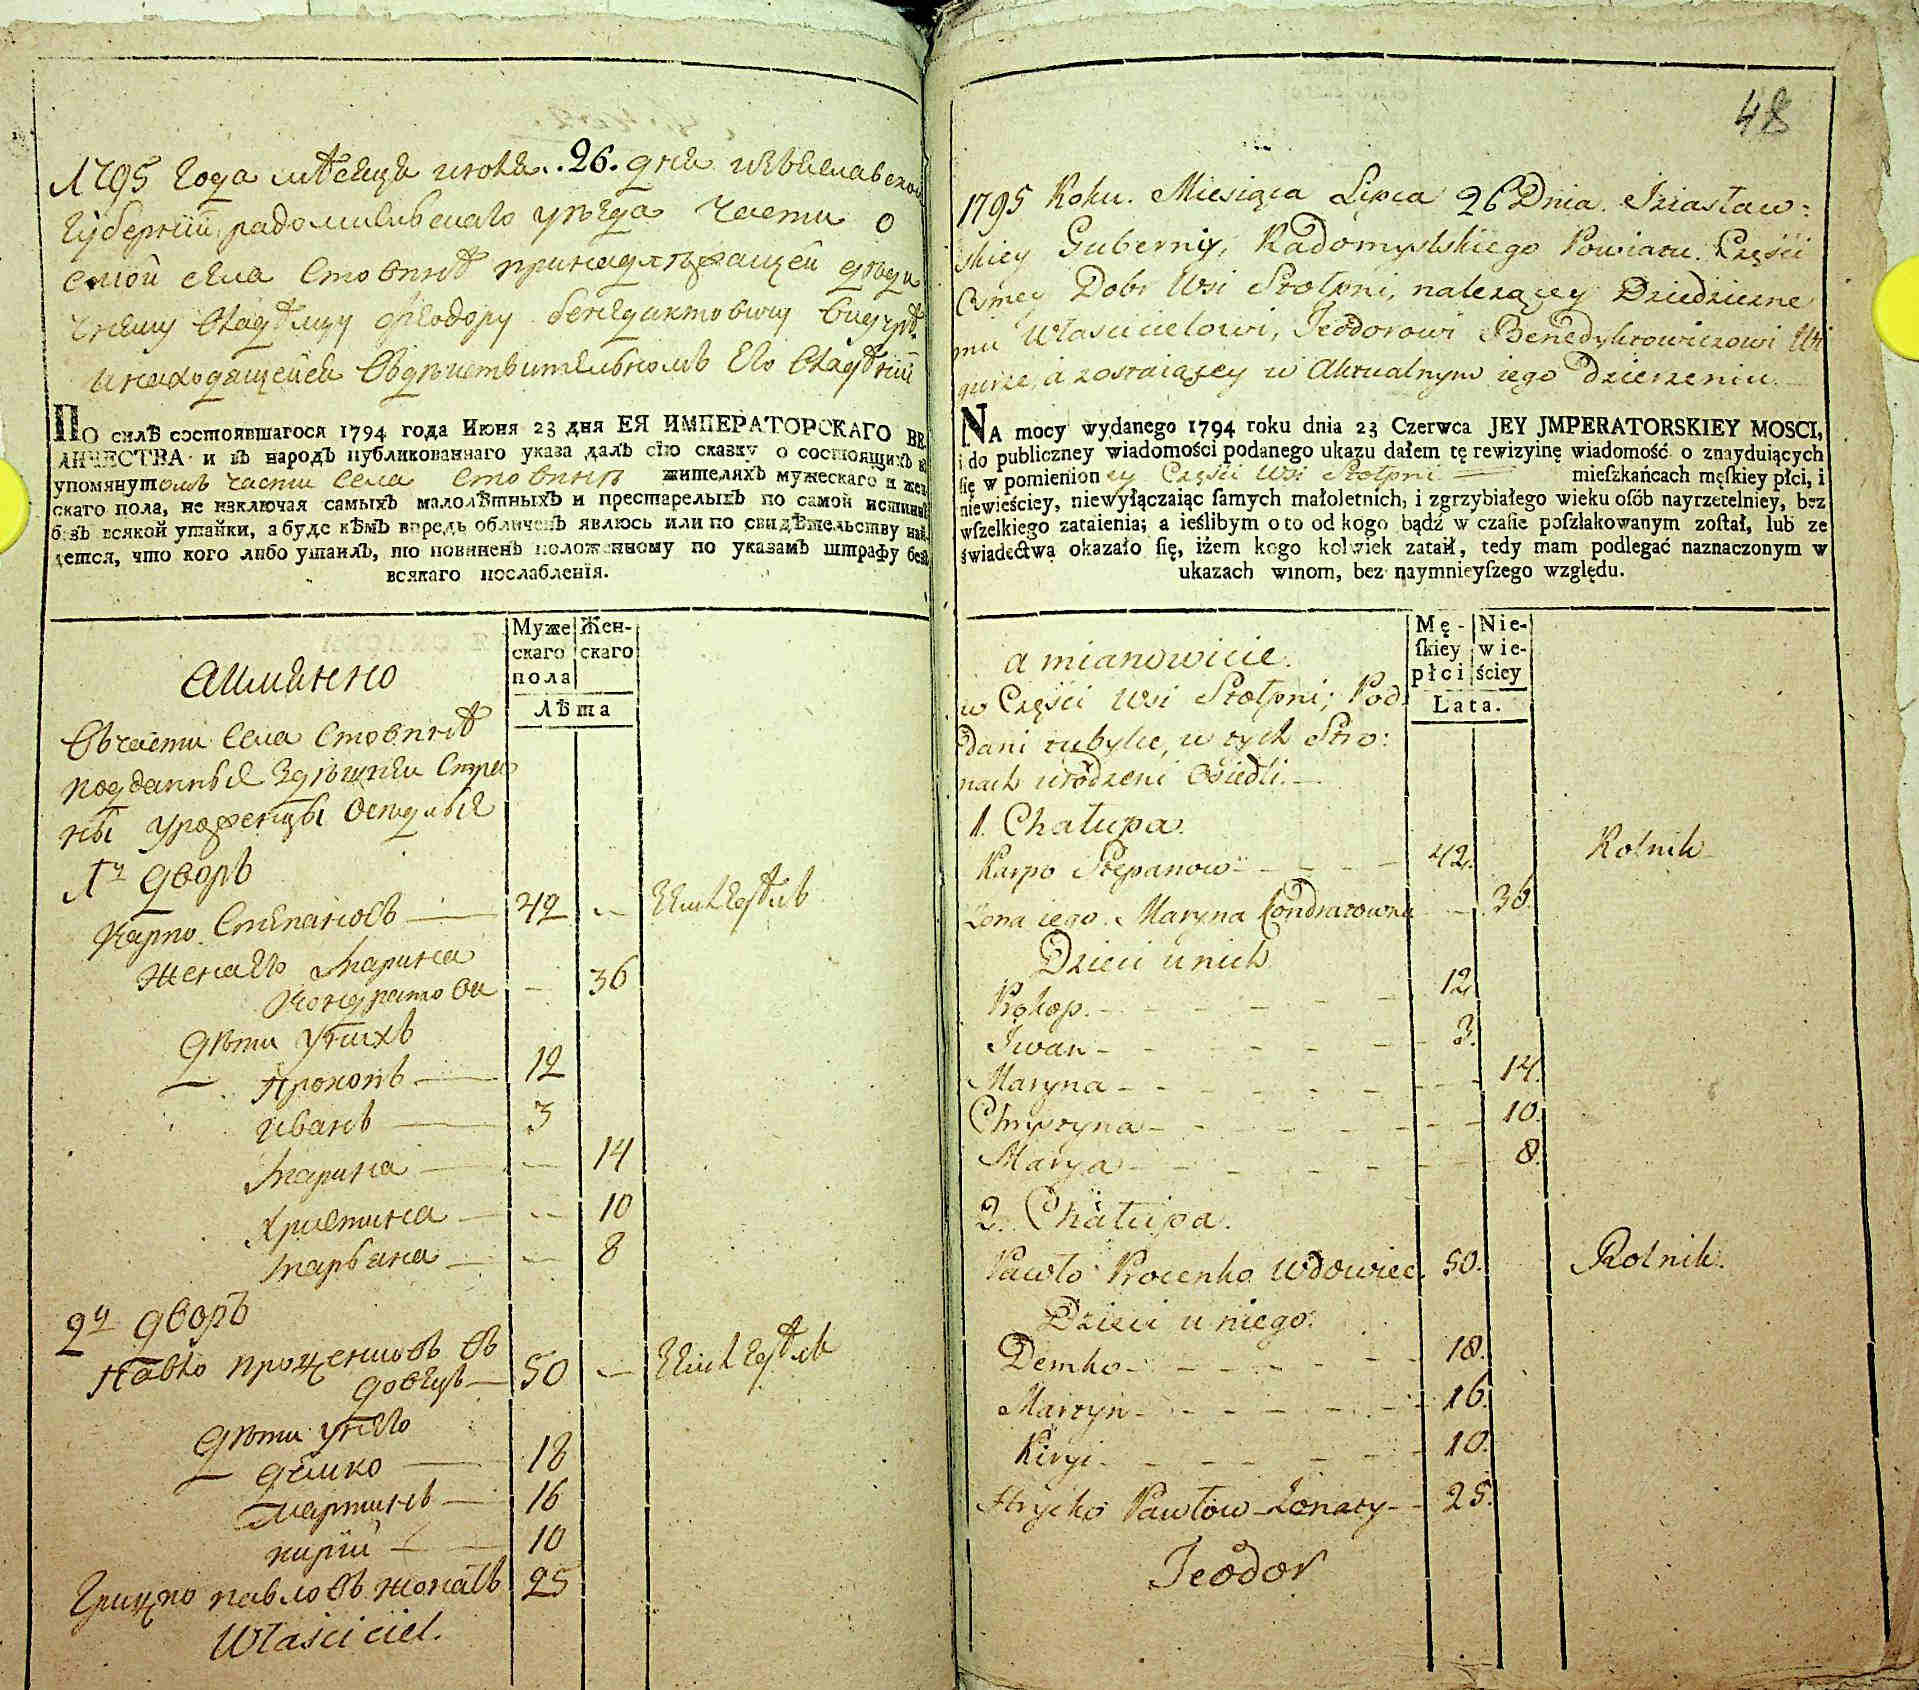 1795 года мѣсяца июля 26. дня изъяславской
губернiи радомысльскаго уѣзда части о
смой села Стовпнѣ принадлѣжащей дѣди
чному владѣлцу феодору бенедиктовичу
и находящейся в дѣйствительномъ Его владѣнiи
По силѣ состоявшагося 1794 года Июня 23 дня ЕЯ ИМПЕРАТОРСКАГО ВЕ-
ЛИЧЕСТВА и въ народъ публикованнаго указа далъ сїю сказку о состоящихъ въ
упомянутомъ части села Стовпнѣ жителяхъ мужескаго и жен-
скаго пола, не изключая самыхъ малолѣтныхъ и престарелыхъ по самой истиннѣ
безъ всякой утайки, а буде кѣмъ впредь обличенъ явлюсь или по свидѣтельству най-
дется, что кого либо утаилъ, то повиненъ положенному по указамъ штрафу безъ
всякаго послабленїя.
Муже
скаго
пола
Жен-
скаго
Лѣта
а имянно
В части села Стовпнѣ
подданные здѣшнѣи Стра
ны уроженцы оседлые
1й дворъ
Карпо Степановъ 42 Земледѣлъ
жена Его Марина
Кондратова 36
дѣти у нихъ
Прокопъ 12
иванъ 3
Марина 14
Христина 10
Марьяна 8
2й дворъ
Павло проценковъ в
довецъ 50 Земледѣлъ
дѣти у него
демко 18
мартинъ 16
кирiй 10
Грицко павловъ женатъ 25
Właściciel.
48
1795 Roku. Miesiąca Lipca 26 Dnia. Iziasław:
skiey Gubernij, Radomyslskiego Powiatu. Części
Osmey Dobr Wsi Stołpni, należącey Dziedziczne
mu Właścicielowi, Teodorowi Benedyktowiczowi Wi
gurze, a zostaiącey w Aktualnym iego dzierżeniu.
NA mocy wydanego 1794 roku dnia 23 Czerwca JEY JMPERATORSKIEY MOSCI,
i do publiczney wiadomości podanego ukazu dałem tę rewizyinę wiadomość o znayduiących
się w pomienioney Części Wsi Stołpni mieſzkańcach męſkiey płci, i
niewieściey, niewyłączaiąc ſamych małoletnich, i zgrzybiałego wieku osób nayrzetelniey, bez
wſzelkiego zataienia; a ieślibym o to od kogo bądź w czaſie poſzlakowanym zoſtał, lub ze
świadectwa okazało ſię, iżem kogo kolwiek zataił, tedy mam podlegać naznaczonym w
ukazach winom, bez naymnieyſzego względu.
Mę-
ſkiey
płci
Nie-
wie-
ściey
Lata.
a mianowicie.
w Części Wsi Stołpni; Pod
dani tubylce, w tych Stro:
nach urodzeni Osiedli.
1. Chałupa.
Karpo Stepanow 42. Rolnik
Żona iego Maryna Kondratowna 36.
Dzieci u nich
Prokop. 12
Iwan 3.
Maryna 14.
Chrystyna 10.
Marya 8.
2. Chałupa.
Pawło Procenko Wdowiec. 50. Rolnik.
Dzieci u niego.
Demko 18.
Martyn 16.
Kiryi 10.
Hryćko Pawłow Żonaty 25.
Teodor